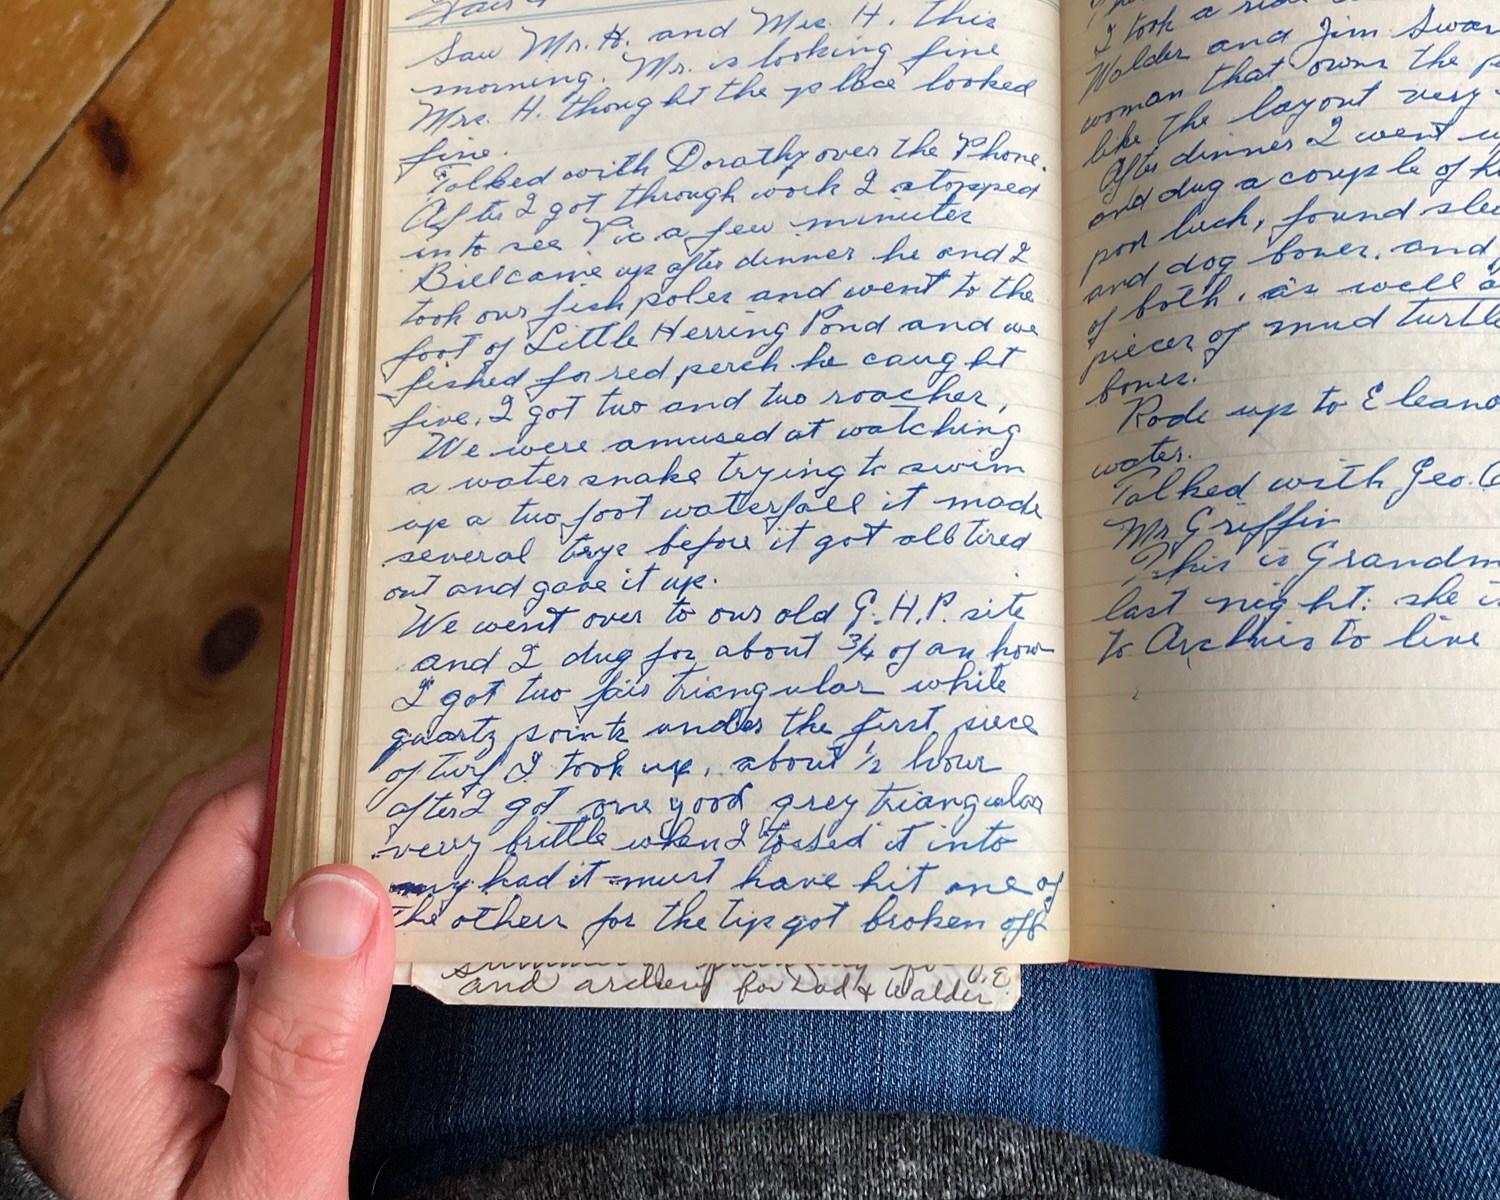 Fair
Saw Mr. H. and Mrs. H. this
morning. Mr. is looking fine
Mrs. H. thought the place looked
fine.
Talked with Dorathy over the Phone.
After I got through work I stopped
in to see Vic a few minutes
Bill came up after dinner he and I
took our fish poles and went to the
foot of Little Herring Pond and we
fished for red perch he caught
five, I got two and two roaches,
We were amused at watching
a water snake trying to swim
up a two foot waterfall it made
several trys before it got all tired
out and gave it up.
We went over to our old G.H.P. site
and I dug for about 3/4 of an hour
I got two fair triangular white
quartz points under the first piece
of turf I took up, about 1/2 hour
after I got one good grey triangular
very brittle when I tossed it into
my had it must have hit one of
the others for the tip got broken off
and archery for Dad & Walder
I took a ride
Walder and Jim Swan
woman that owns the
like the layout very
After dinner I went
and dug a couple of
poor luck, found
and dog bones, and
of both, as well
pieces of mud turtle
bones.
Rode up to Eleano
water.
Talked with Geo.
Mr Griffin
This is Grandm
last night: she
to Archies to live